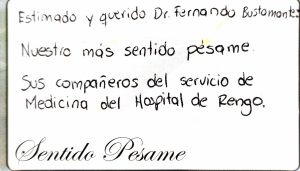 Estimado y querido Dr. Fernando Bustamante:
Nuestro más sentido pésame.
Sus compañeros del servicio de
Medicina del Hospital de Rengo.
Sentido Pesame